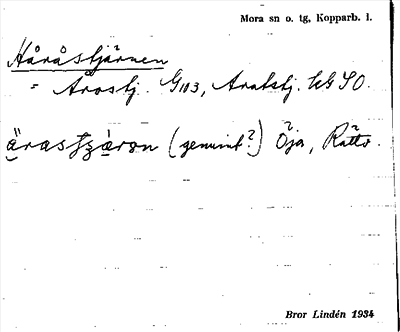 Mora sn o. tg, Kopparb. l.
Håråstjärnen
= Årostj. G103, Aratstj. kG SO.
(genuint?) Öja, Rättv.
Bror Lindén 1934